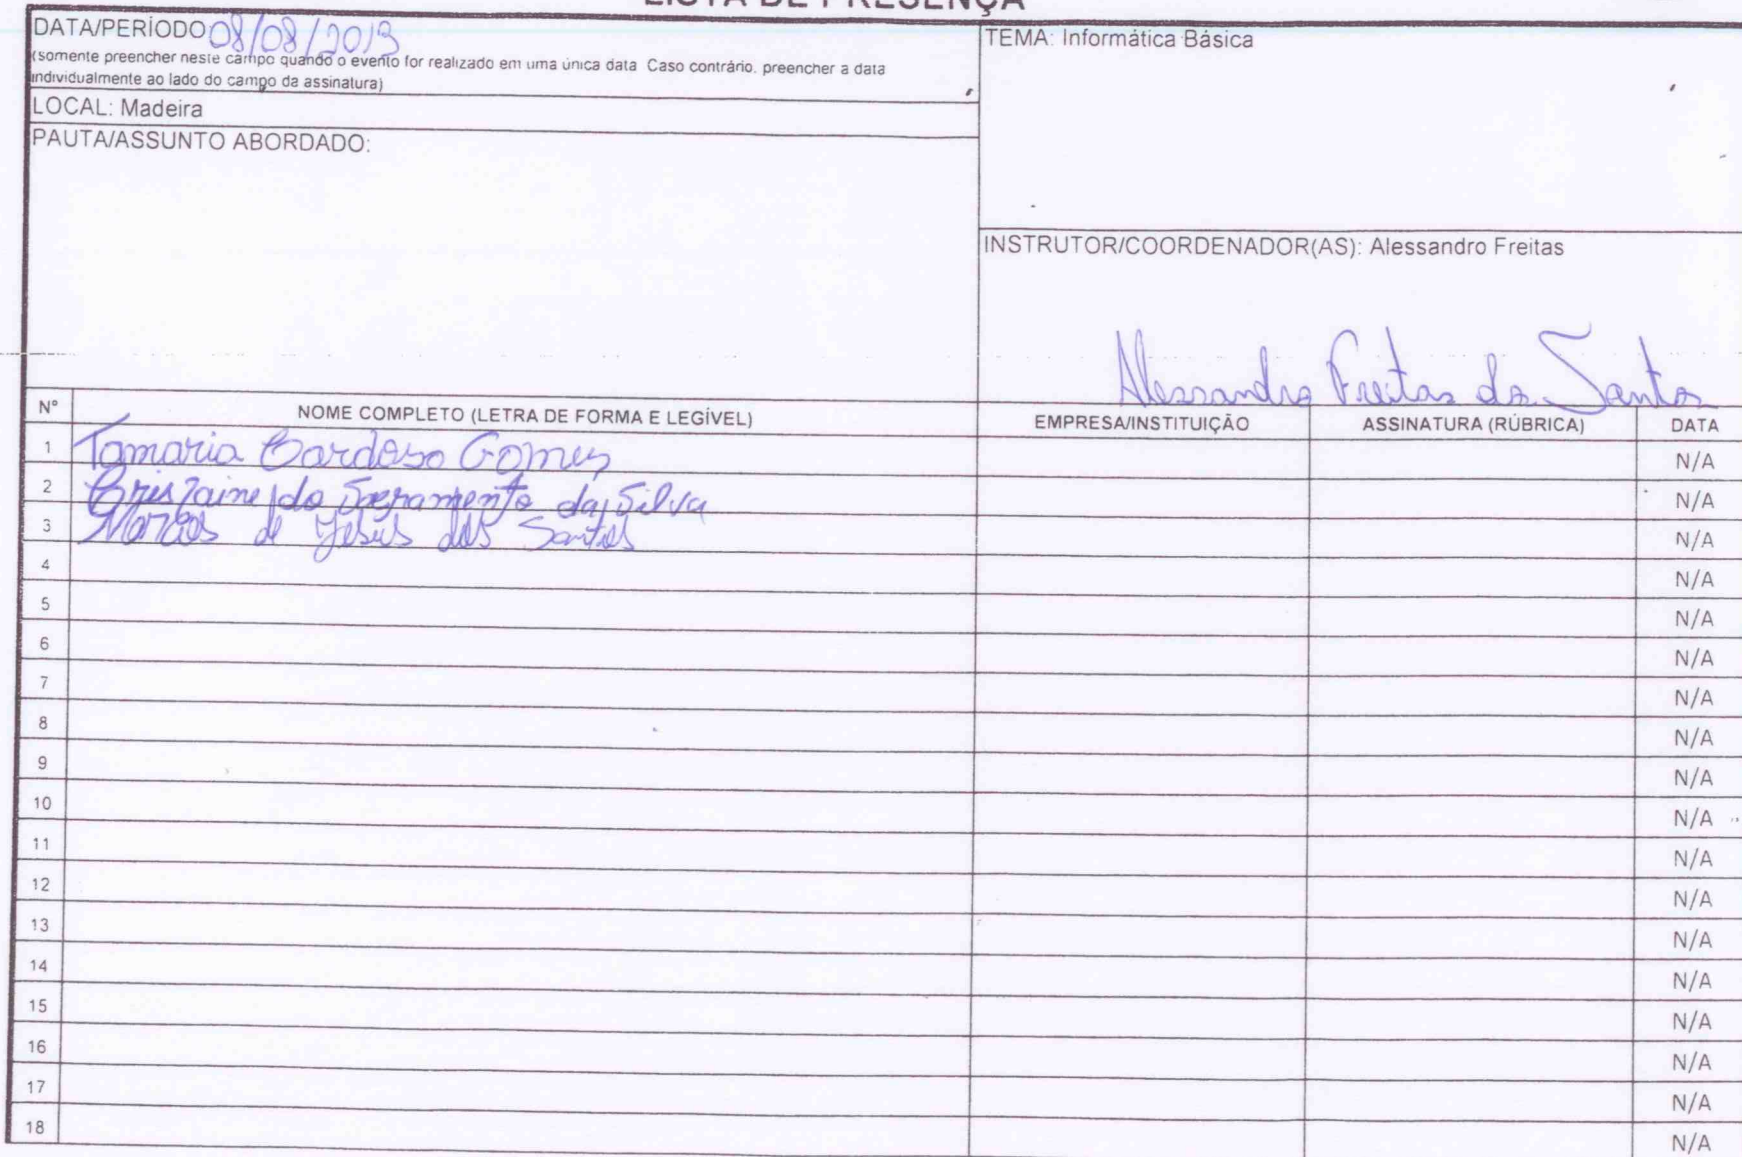 LISTA DE PRESENÇA
DATA/PERÍODO 08/08/2013
(somente preencher neste campo quando o evento for realizado em uma única data Caso contrário, preencher a data
individualmente ao lado do campo da assinatura)
LOCAL: Madeira
PAUTA/ASSUNTO ABORDADO:
TEMA: Informática Básica
INSTRUTOR/COORDENADOR(AS): Alessandro Freitas
Alessandro Freitas dos Santos
N° NOME COMPLETO (LETRA DE FORMA E LEGÍVEL) EMPRESA/INSTITUIÇÃO ASSINATURA (RÚBRICA) DATA
1 Tamaria Cardoso Gomes N/A
2 Crislaine do Sacramento da Silva N/A
3 Marcos de Jesus dos Santos N/A
4 N/A
5 N/A
6 N/A
7 N/A
8 N/A
9 N/A
10 N/A
11 N/A
12 N/A
13 N/A
14 N/A
15 N/A
16 N/A
17 N/A
18 N/A